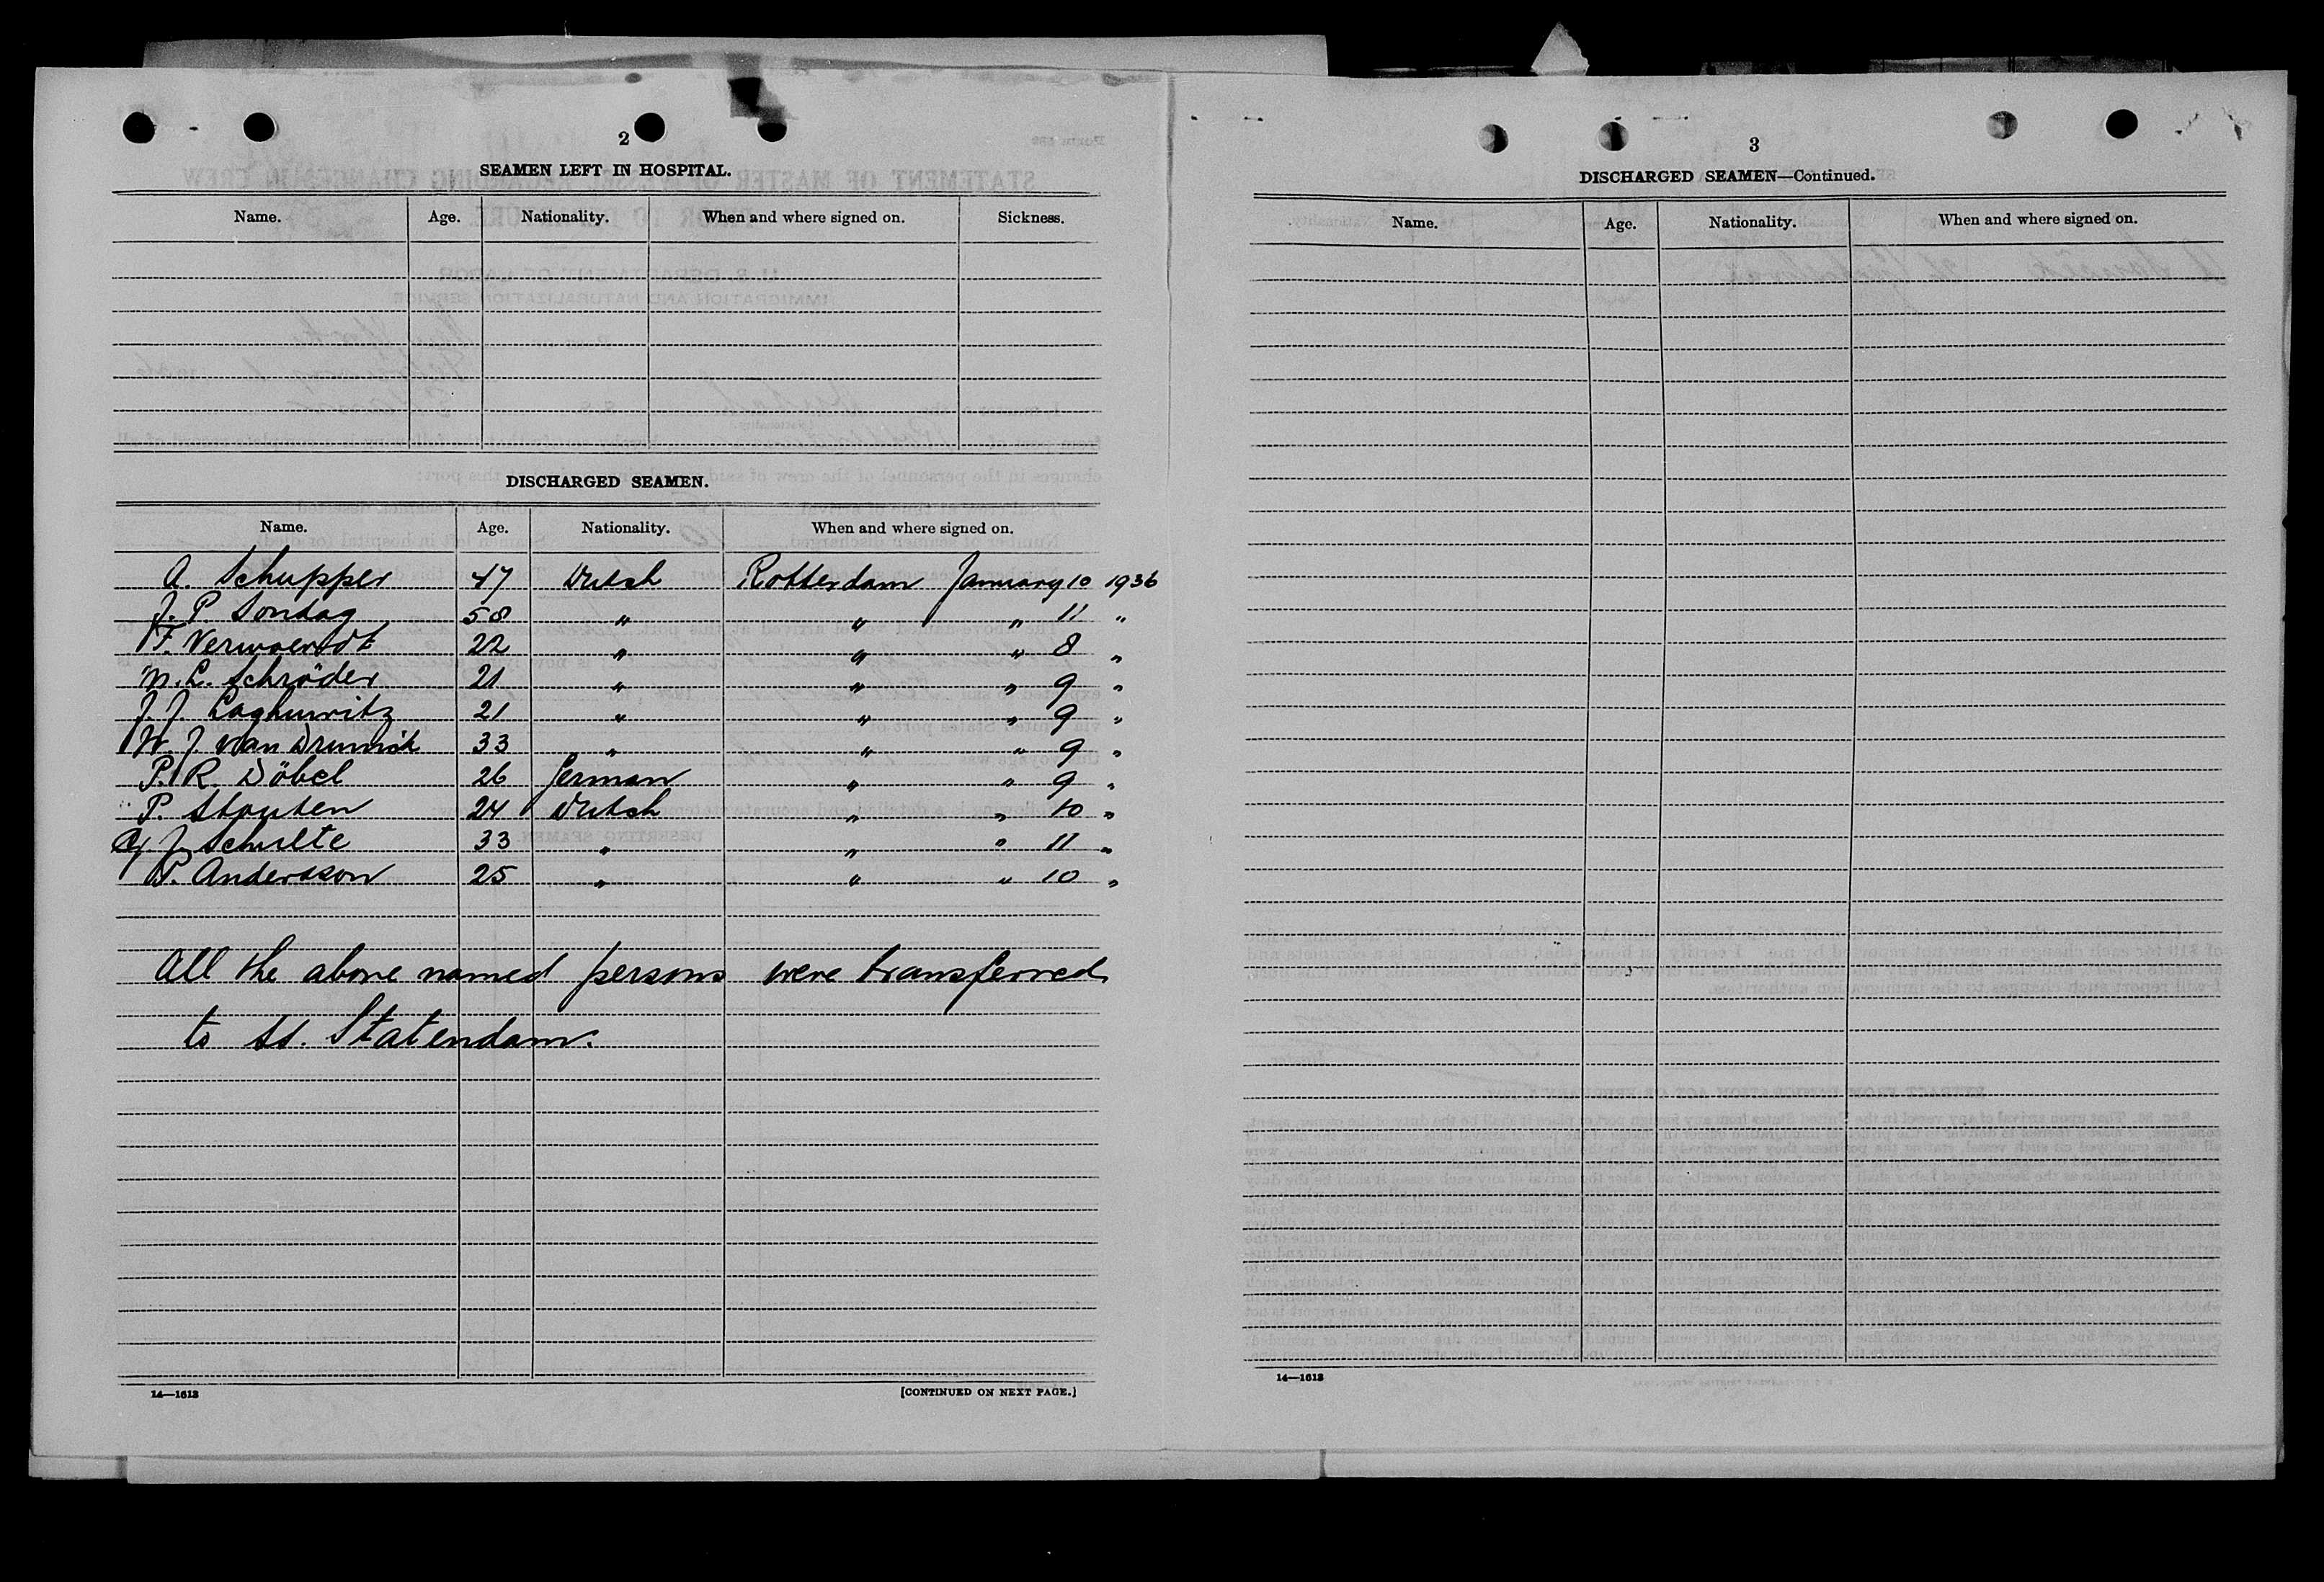 2
SEAMEN LEFT IN HOSPITAL.
Name. Age. Nationality. When and where signed on. Sickness.
DISCHARGED SEAMEN.
Name. Age. Nationality. When and where signed on.
A. Schupper 47 Dutch Rotterdam January 10 1936
J. P. Sondag 58 " " " 11 "
F. Verwoerdt 22 " " " 8 "
N. L. Schröder 21 " " " 9 "
J. J. 21 " " " 9 "
W. J. van 33 " " " 9 "
P. R. Döbel 26 German " " 9 "
P. Stouten 24 Dutch " " 10 "
J. Schulte 33 " " " 11 "
P. Andersson 25 " " " 10 "
All the above named persons were transferred
to ss. Statendam.
14—1613 [CONTINUED ON NEXT PAGE.]
3
DISCHARGED SEAMEN—Continued.
Name. Age. Nationality. When and where signed on.
14—1613